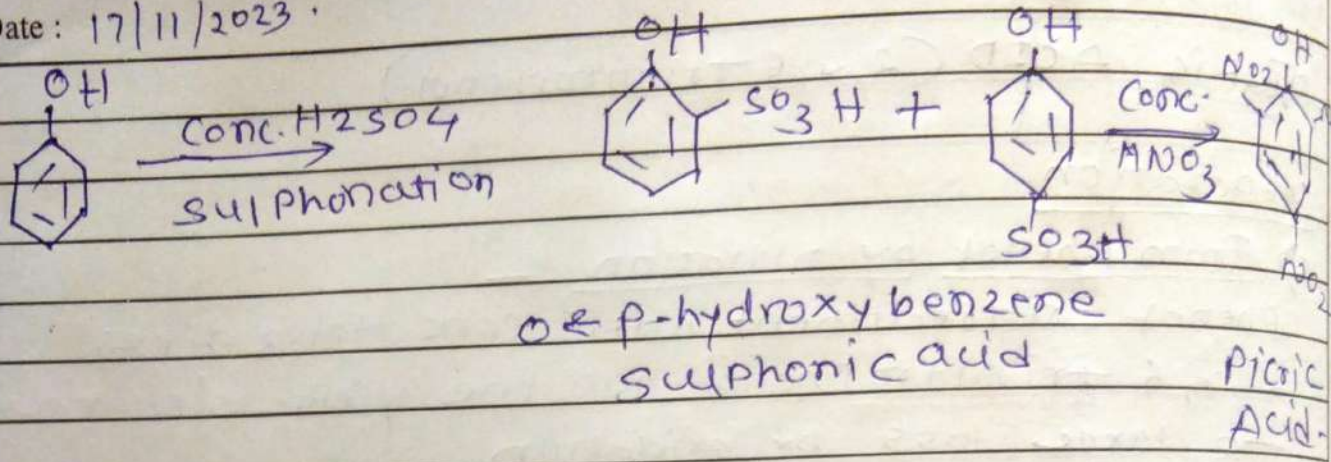 Date : 17/11/2023.
OH
OH
OH
OH
Conc. H2SO4
Sulphonation
SO3H +
Conc.
HNO3
NO2
SO3H
NO2
o & p-hydroxy benzene
Sulphonic acid
Picric
Acid.